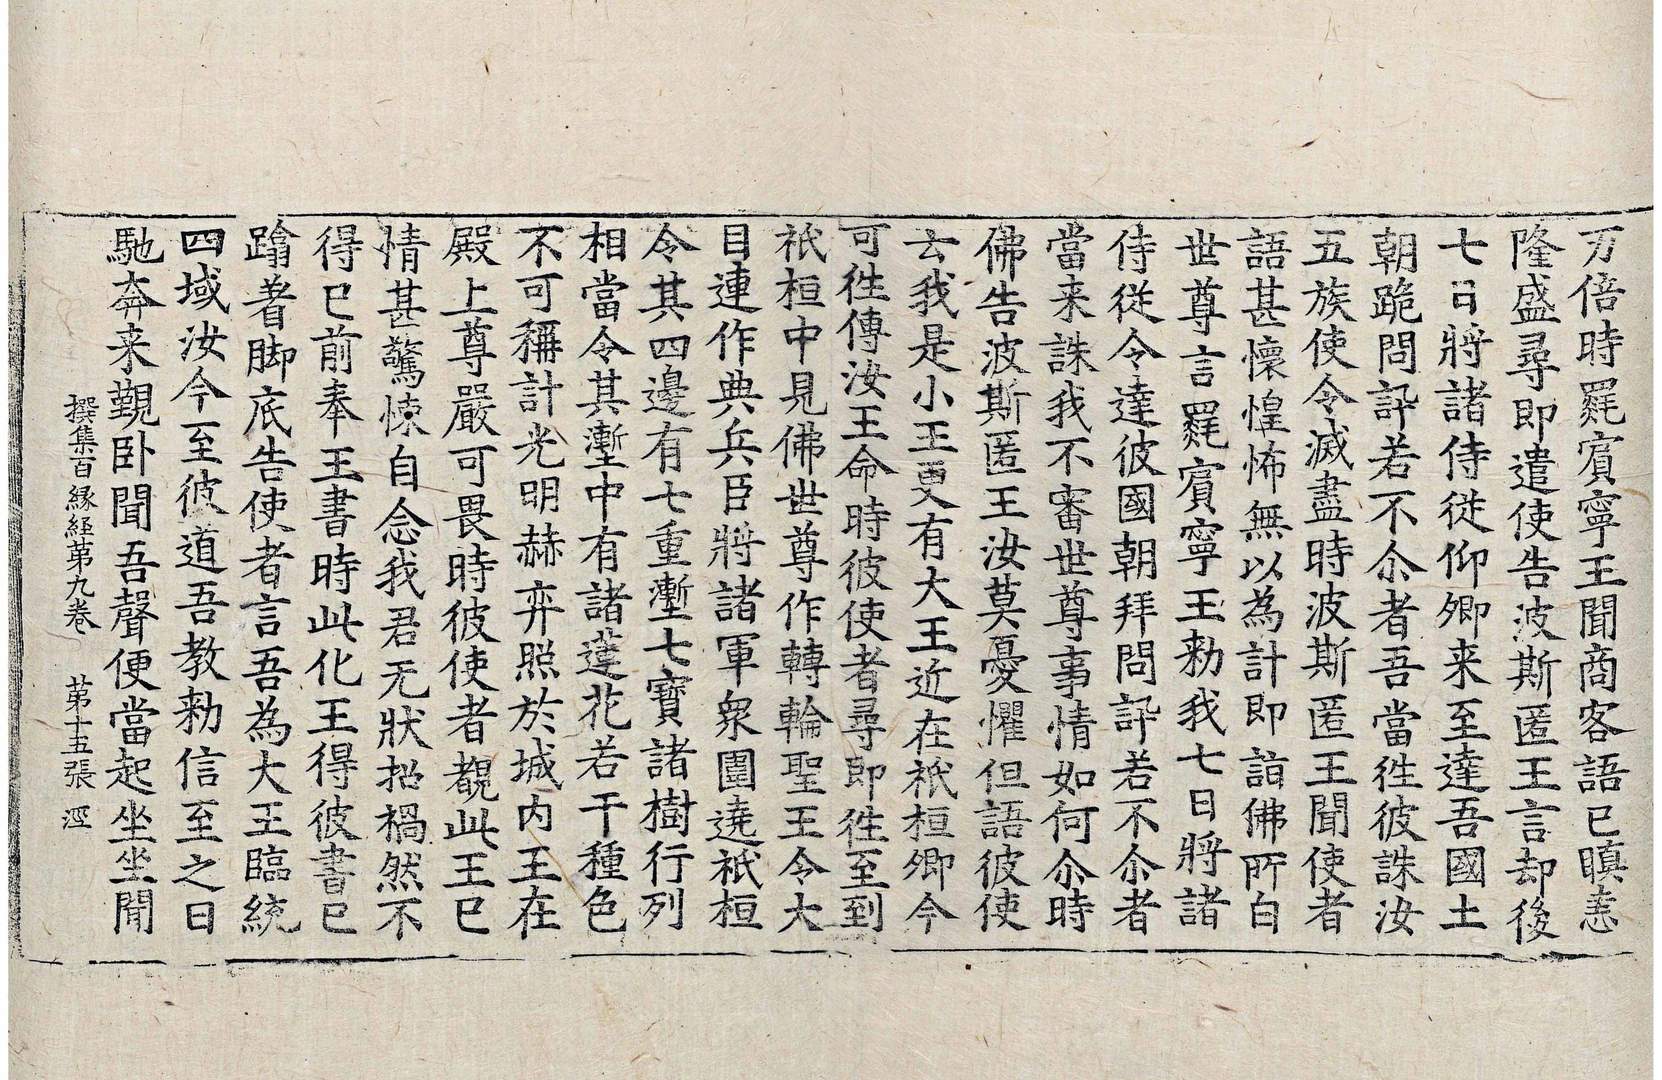 万倍時罽賓寧王聞商客語已瞋恚
隆盛尋即遣使告波斯匿王言却後
七日將諸侍從仰卿来至達吾國土
朝跪問訊若不尒者吾當徃彼誅汝
五族使令滅盡時波斯匿王聞使者
語甚懷惶怖無以為計即詣佛所白
世尊言罽賓寧王勑我七日將諸
侍從令達彼國朝拜問訊若不尒者
當来誅我不審世尊事情如何尒時
佛告波斯匿王汝莫憂懼但語彼使
云我是小王更有大王近在祇桓卿今
可徃傳汝王命時彼使者尋即徃至到
祇桓中見佛世尊作轉輪聖王令大
目連作典兵臣將諸軍衆圍遶祇桓
令其四邊有七重壍七寶諸樹行列
相當令其壍中有諸蓮花若干種色
不可稱計光明赫弈照於城内王在
殿上尊嚴可畏時彼使者覩此王已
情甚驚悚自念我君无狀招禍然不
得已前奉王書時此化王得彼書已
蹹著脚底告使者言吾為大王臨統
四域汝今至彼道吾教勑信至之日
馳奔来覲卧聞吾聲便當起坐坐聞
撰集百縁経第九卷 第十五張 溼